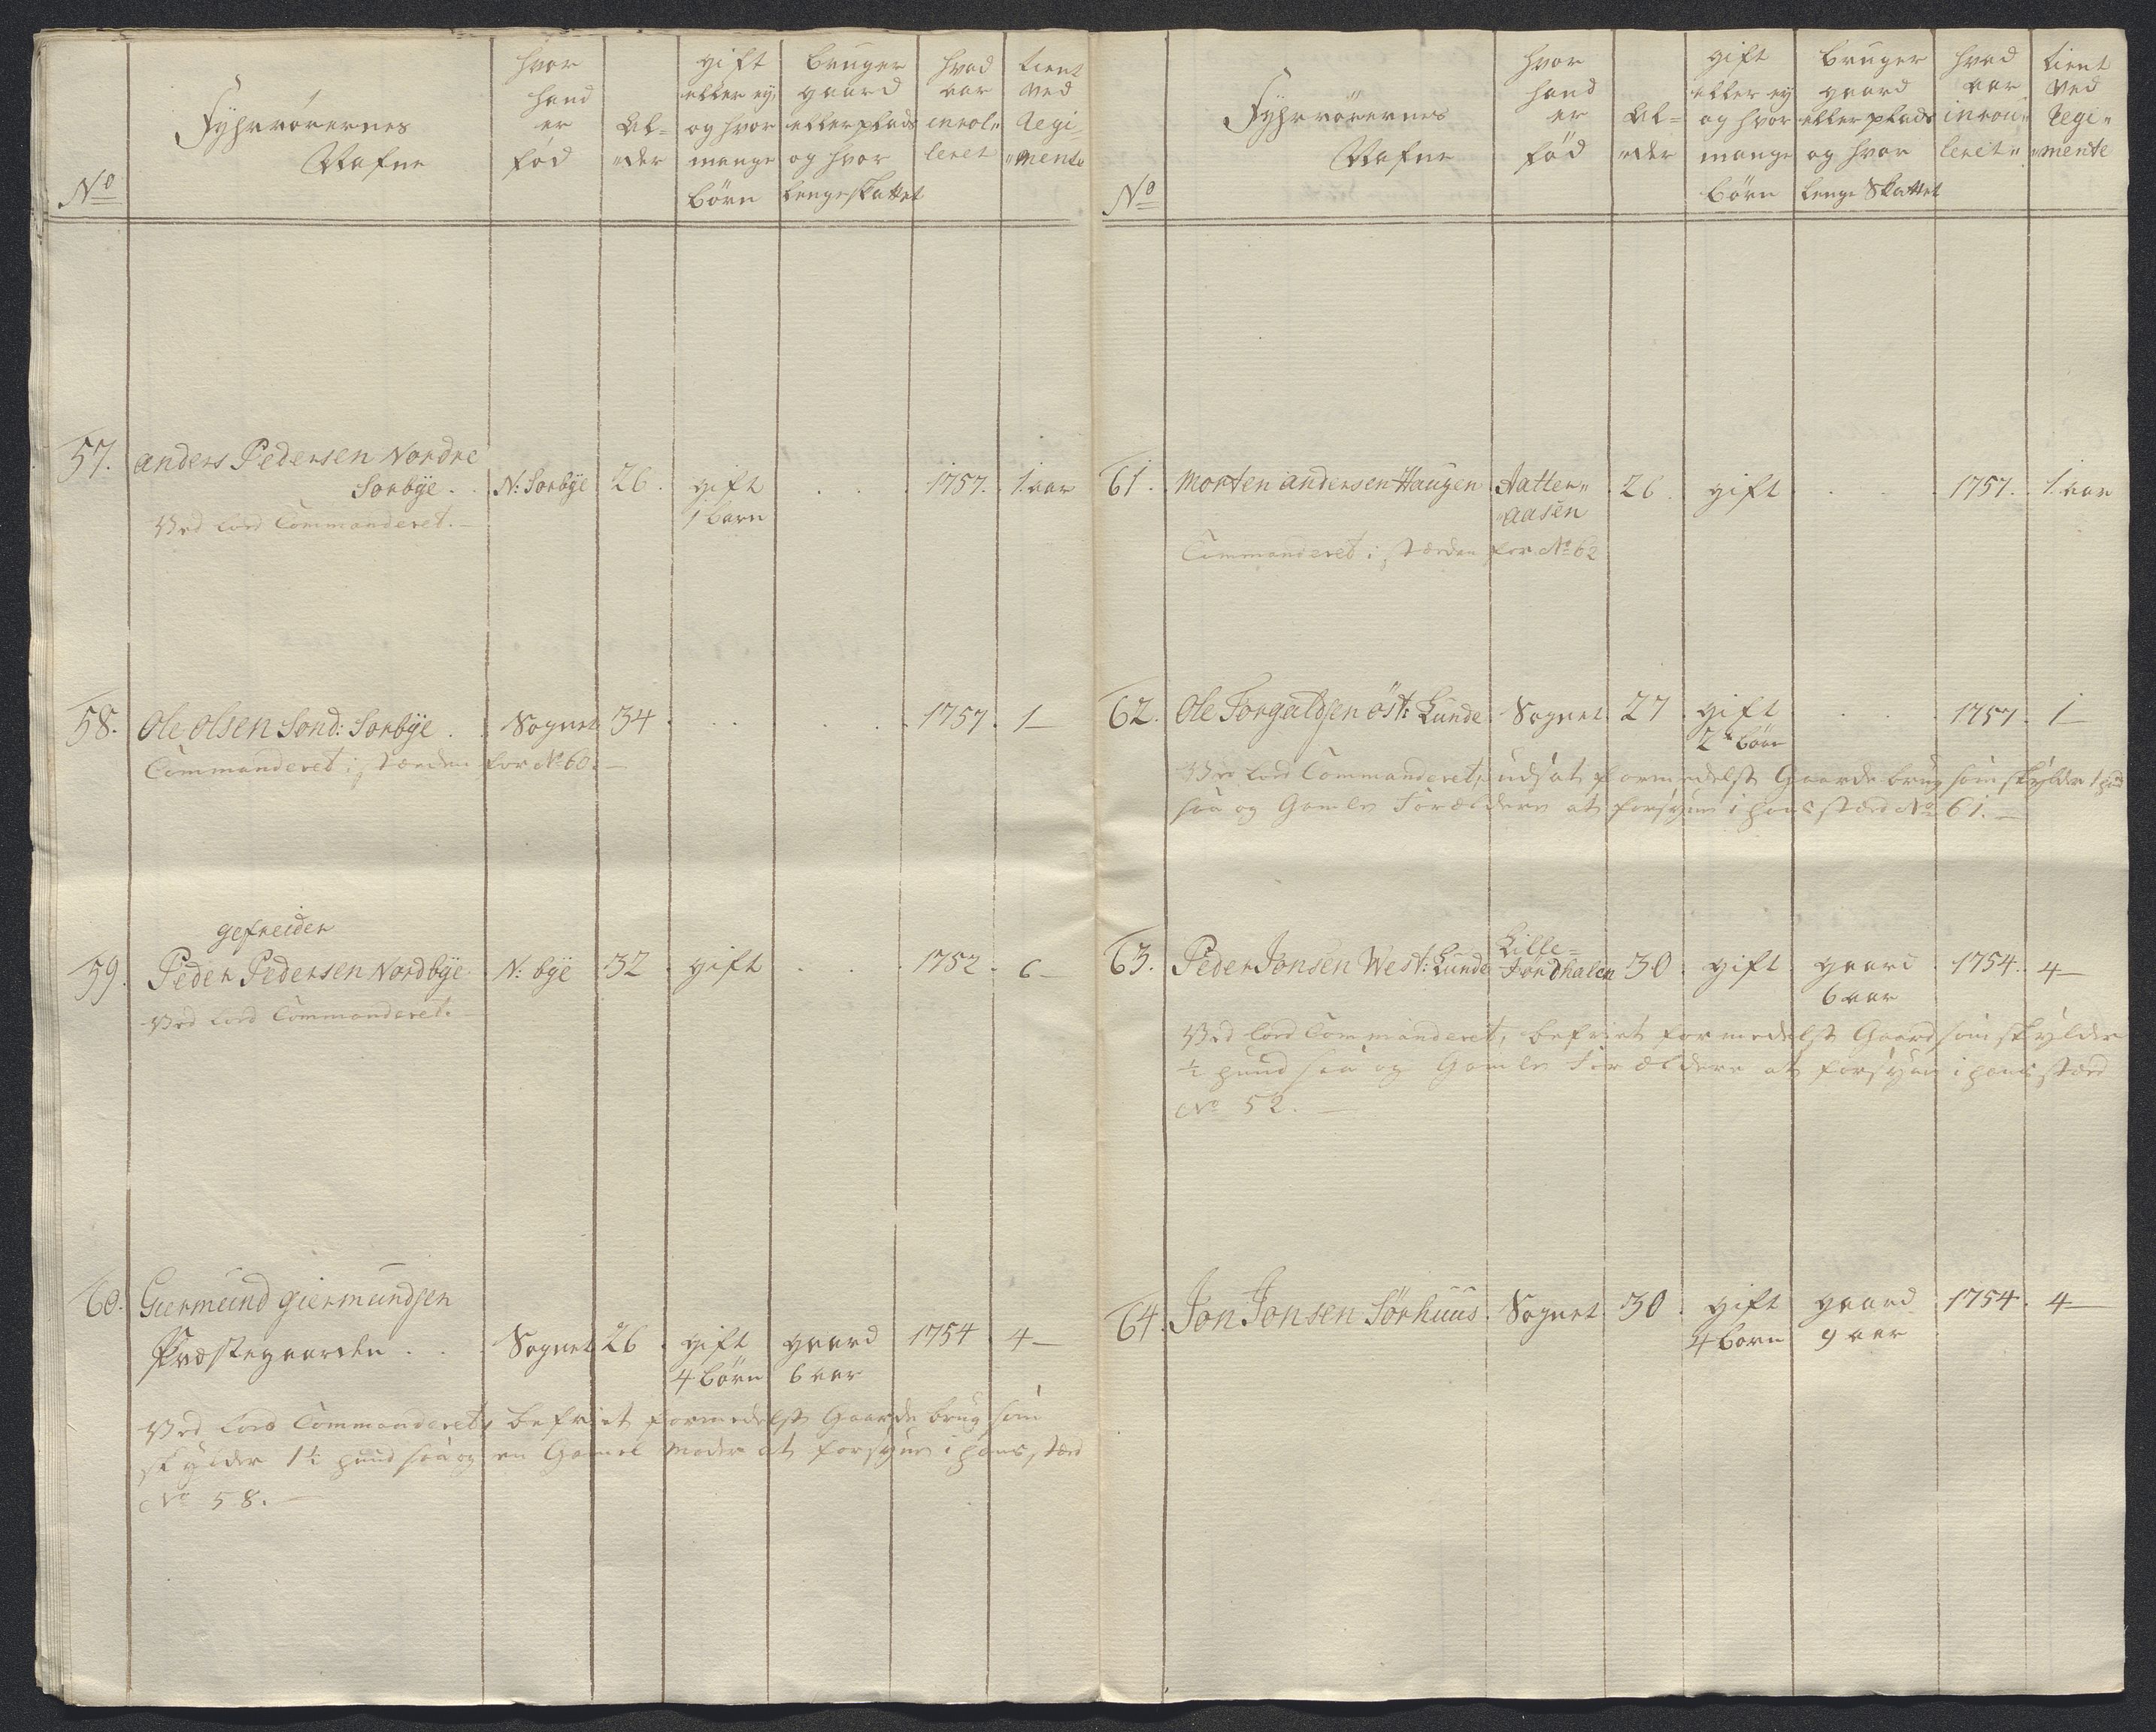 No
Fyhrrörernes
Nafne
hvor
hand
er
fød
Al=
"der
gift
eller ey,
og hvor
mange
børn
bruger
gaard
eller plads
og hvor
lenge skattet
hvad
aar
enrol"
leret
tient
ved
Regi"
"mente
57. anders Pedersen Nordre
Sorbÿe . . N: Sorbÿe 26. gift . . . 1757. 1. aar
1 barn
Ved lord Commanderet. –
58. Ole Olsen Sond: Sorbÿe . . Sognet 34 . . . . . 1757. 1 –
Commanderet i stæden for No 60. –
gefreider
59. Peder Pedersen Nordbÿe N: bÿe 32 . gift . . . 1752 . 6 –
Ved lord Commanderet. –
60. Giermund giermundsen
Præstegaarden . . Sognet 26 . gift gaard 1754 . 4 –
4 børn 6 aar
Ved lord Commanderet, befriet formedelst Gaarde brug som
skylder 1½ pund saa og en Gamel Moder at forsyne i hans stæd
No 58. –
No
Fyhrrörernes
Nafne
hvor
hand
er
fød
Al=
"der
gift
eller ey
og hvor
mange
børn
bruger
gaard
eller plads
og hvor
lenge Skattet
hvad
aar
inrou"
leret"
tient
ved
Regi"
"mente
61. Morten andersen Haugen Aatter" . 26 . gift . . 1757. 1. aar
"aasen
Commanderet i stæden for No 62
62. Ole Torgalsen öst: Lunde . Sognet 27 . gift . . 1757. 1 –
2 börn
Ved lord Commanderet, udsat formedelst Gaarde brug som skylder 1 pund
saa og Gamle Forældere at forsyne i hans stæd No 61. –
63. Peder Jonsen West: Lunde Lille= 30 . gift gaard . 1754. 4 –
=Jordhalen
6 aar
Ved lord Commanderet, befriet formedelst Gaard som skylder
½ pund saa og Gamle Forældere at forsyne i hans stæd
No 52. –
64. Jon Jonsen Sörhuus . Sognet 30 . gift gaard 1754. 4 –
4 børn 9 aar